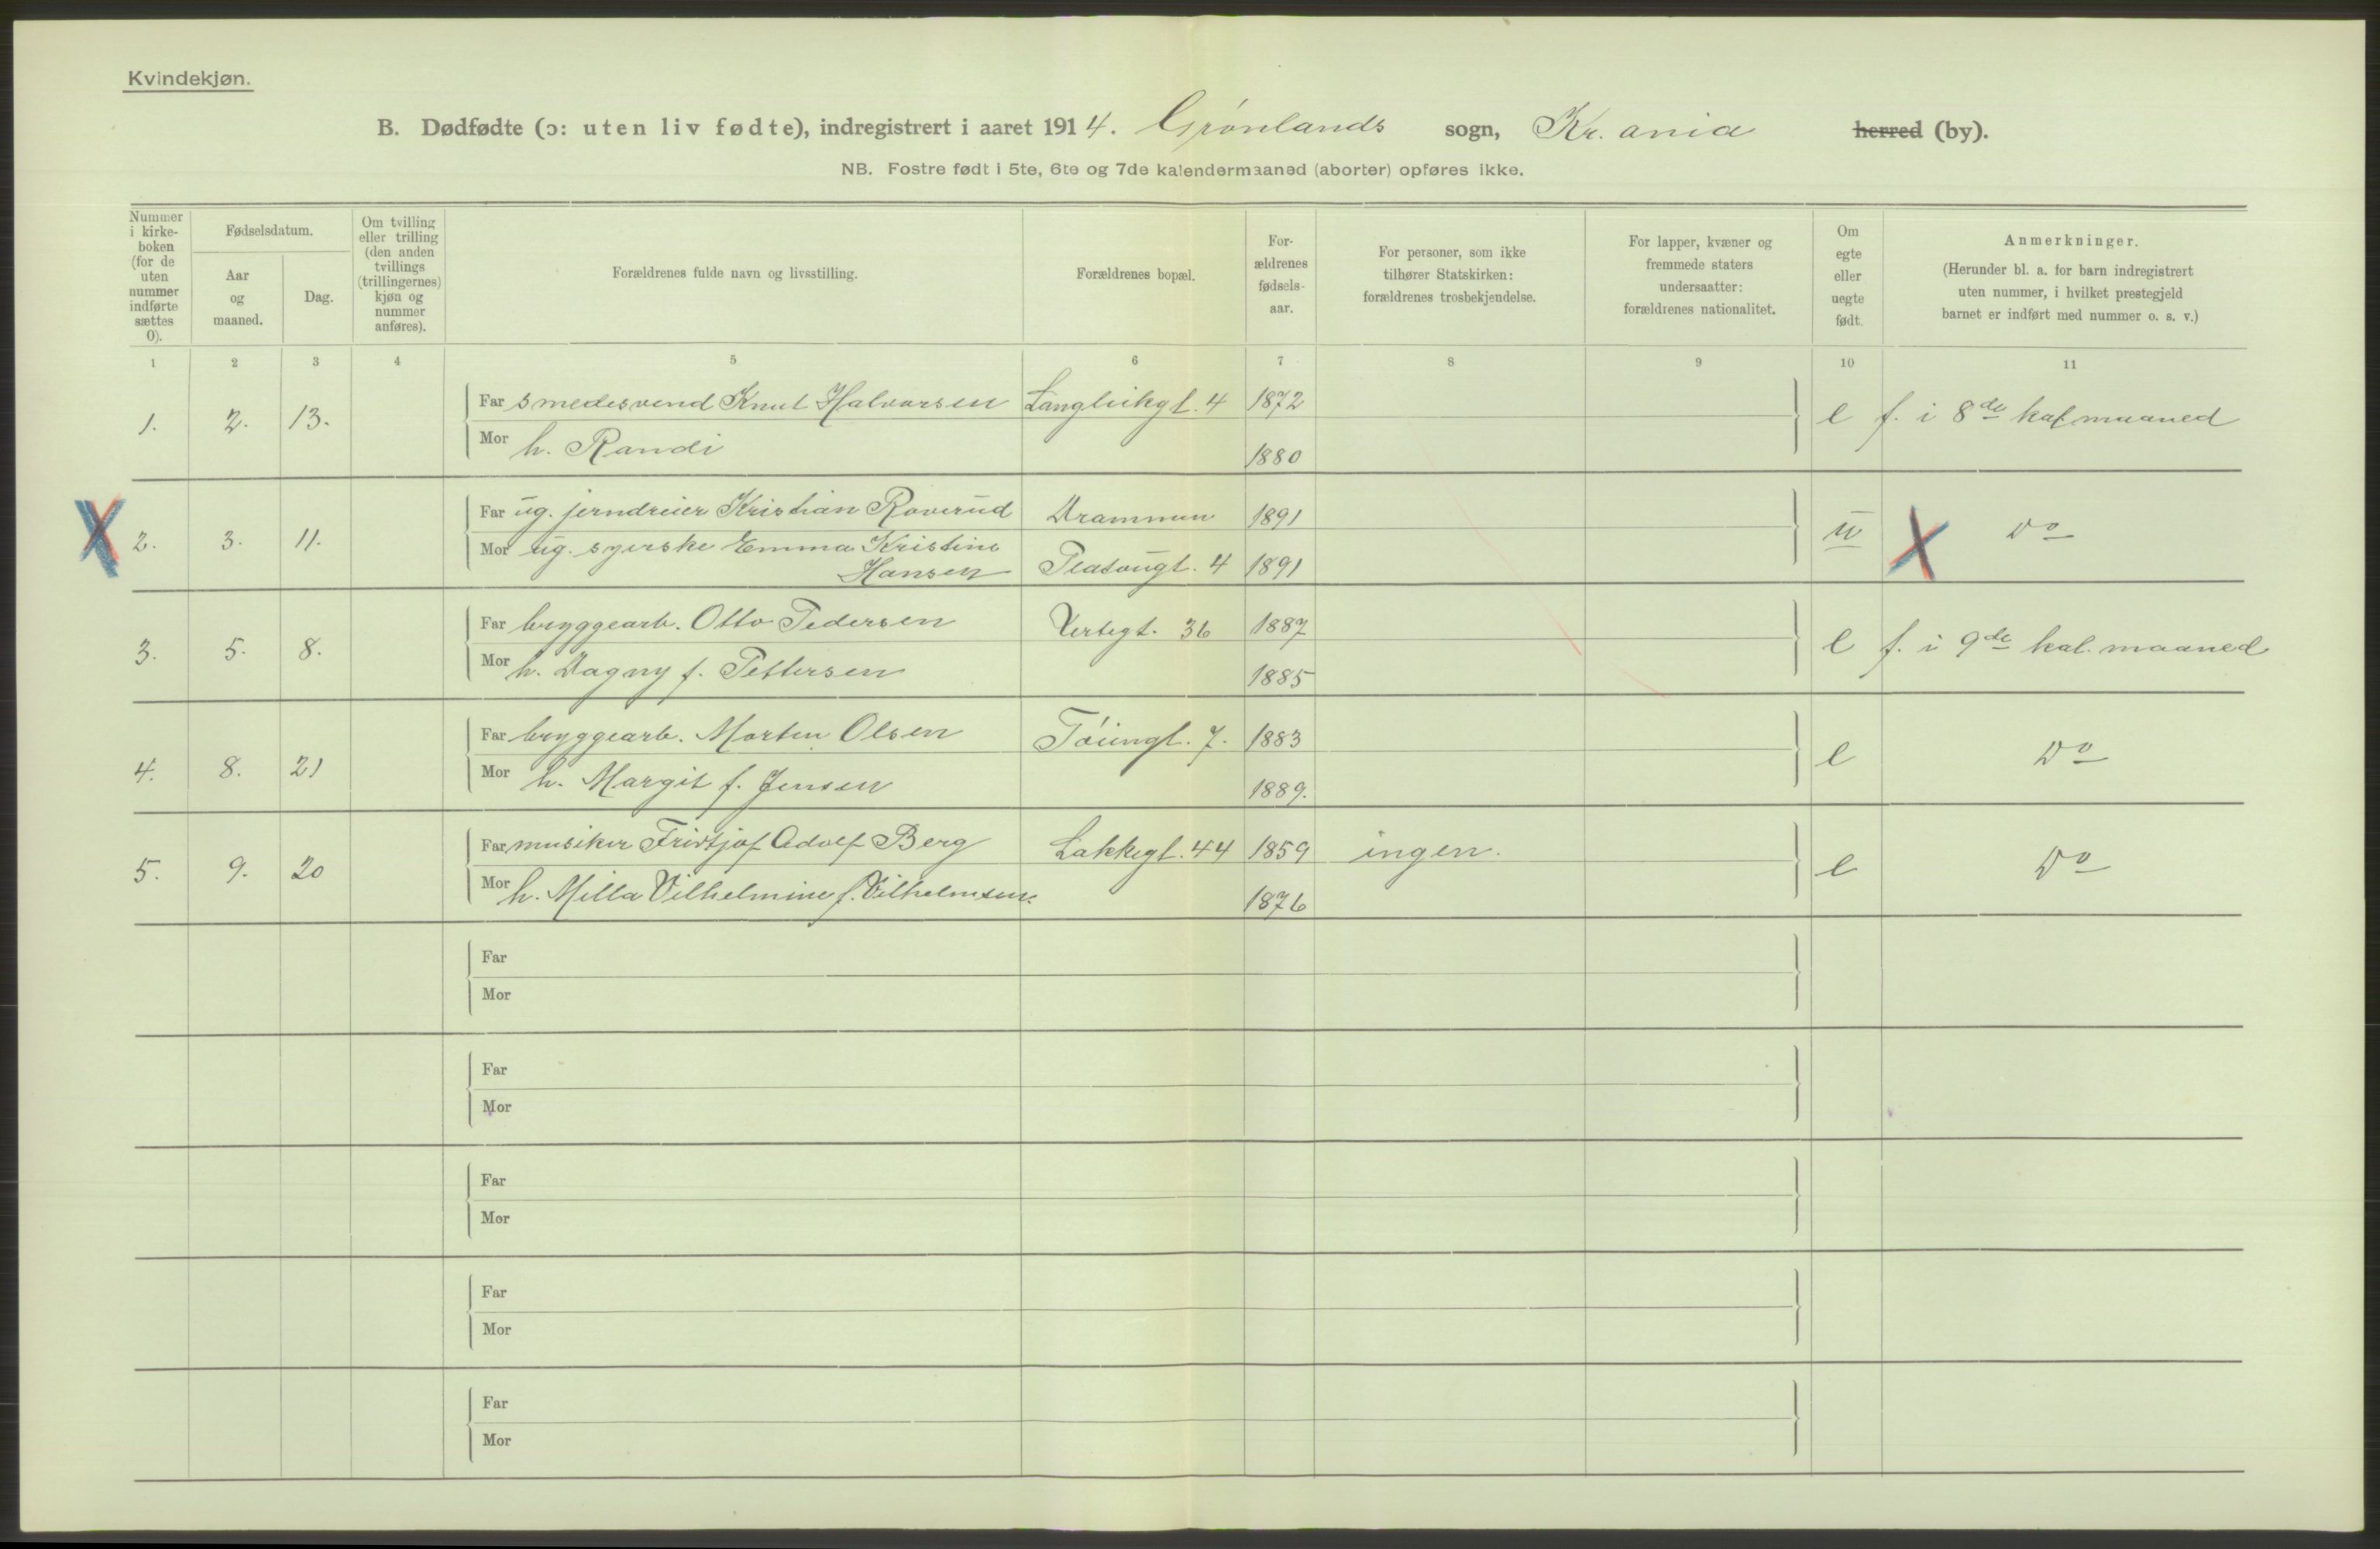 Kvindekjøn.
B. Dødfødte (ɔ: uten liv fødte), indregistrert i aaret 1914. Grønlands sogn, Kr.ania herred (by).
NB. Fostre født i 5te, 6te og 7de kalendermaaned (aborter) opføres ikke.
Nummer i kirke-boken (for de uten nummer indførte sættes 0).
Fødselsdatum.
Aar og maaned.
Dag.
Om tvilling eller trilling (den anden tvillings (trillingernes) kjøn og nummer anføres).
Forældrenes fulde navn og livsstilling.
Forældrenes bopæl.
For-ældrenes fødsels-aar.
For personer, som ikke tilhører Statskirken: forældrenes trosbekjendelse.
For lapper, kvæner og fremmede staters undersaatter: forældrenes nationalitet.
Om egte eller uegte født.
Anmerkninger.
(Herunder bl. a. for barn indregistrert uten nummer, i hvilket prestegjeld barnet er indført med nummer o. s. v.)
1 2 3 4 5 6 7 8 9 10 11
1. 2. 13. Far smedesvend Knut Halvorsen Langleikgt. 4 1872 e f. i 8de kal maaned
Mor h. Randi 1880
2. 3. 11. Far ug. jerndreier Kristian Roverud Drammen 1891 u Do
Mor ug. syerske Emma Kristine
Hansen Platougt. 4 1891
3. 5. 8. Far bryggearb. Otto Pedersen Verksgt. 36 1887 e f. i 9de kal. maaned
Mor h. Dagny f. Pettersen 1885
4. 8. 21 Far bryggearb. Morten Olsen Tøiengt. 7. 1883 e Do
Mor h. Margit f. Jensen 1889.
5. 9. 20 Far musiker Fridtjof Adolf Berg Lakkegt. 44 1859 ingen. e Do
Mor h. Milla Vilhelmine f. Vilhelmsen. 1876
Far
Mor
Far
Mor
Far
Mor
Far
Mor
Far
Mor